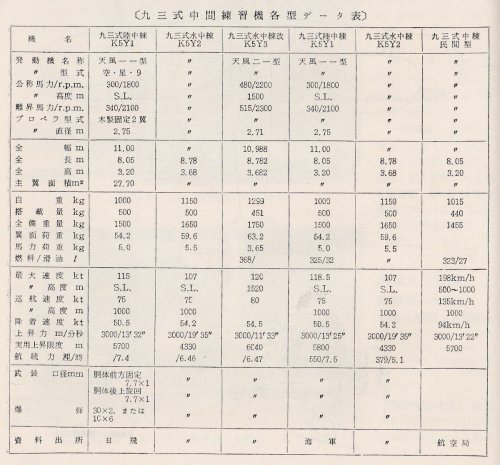 〔九三式中間練習機各型データ表〕
機 名 九三式陸中練 K5Y1 九三式水中練 K5Y2 九三式水中練改 K5Y3 九三式陸中練 K5Y1 九三式水中練 K5Y2 九三式陸中練 民間型
発動機名称 天風一一型 〃 天風二一型 天風一一型 〃 〃
〃 型式 空・星・9 〃 〃 〃 〃 〃
公称馬力/r.p.m. 300/1800 〃 480/2200 300/1800 〃 〃
〃 高度 m S.L. 〃 1500 S.L. 〃 〃
離昇馬力/r.p.m. 340/2100 〃 515/2300 340/2100 〃 〃
プロペラ型式 木製固定2翼 〃 〃 〃 〃 〃
〃 直径 m 2.75 〃 2.71 2.75 〃 〃
全 幅 m 11.00 〃 10.988 11.00 〃 〃
全 長 m 8.05 8.78 8.782 8.05 8.78 8.05
全 高 m 3.20 3.68 3.682 3.20 3.68 3.20
主翼面積 m² 27.70 〃 〃 〃 〃 〃
自 重 kg 1000 1150 1299 1000 1150 1015
搭載量 kg 500 500 451 500 500 440
全備重量 kg 1500 1650 1750 1500 1650 1455
翼面荷重 kg 54.2 59.6 63.2 54.2 59.6
馬力荷重 kg 5.0 5.5 3.65 5.0 5.5
燃料/滑油 l 368/ 325/32 〃 323/27
最大速度 kt 115 107 120 118.5 107 198km/h
〃 高度 m S.L. S.L. 1520 S.L. S.L. 500~1000
巡航速度 kt 75 75 60 75 75 135km/h
〃 高度 m 1000 1000 1000 1000 1000
降着速度 kt 50.5 54.2 54.5 50.5 54.2 94km/h
上昇力 m/分秒 3000/13′32″ 3000/19′35″ 3000/11′33″ 3000/13′25″ 3000/19′35″ 3000/13′22″
実用上昇限度 m 5700 4330 6040 5800 4330 5700
航続力 浬/時 /7.4 /6.46 /6.47 550/7.5 379/5.1
武装 口径mm 胴体前方固定 7.7×1 〃 〃 〃 〃
胴体後上旋回 7.7×1
爆 弾 30×2, または 10×6 〃 〃 〃 〃
資料出所 日飛 〃 〃 海軍 〃 航空局